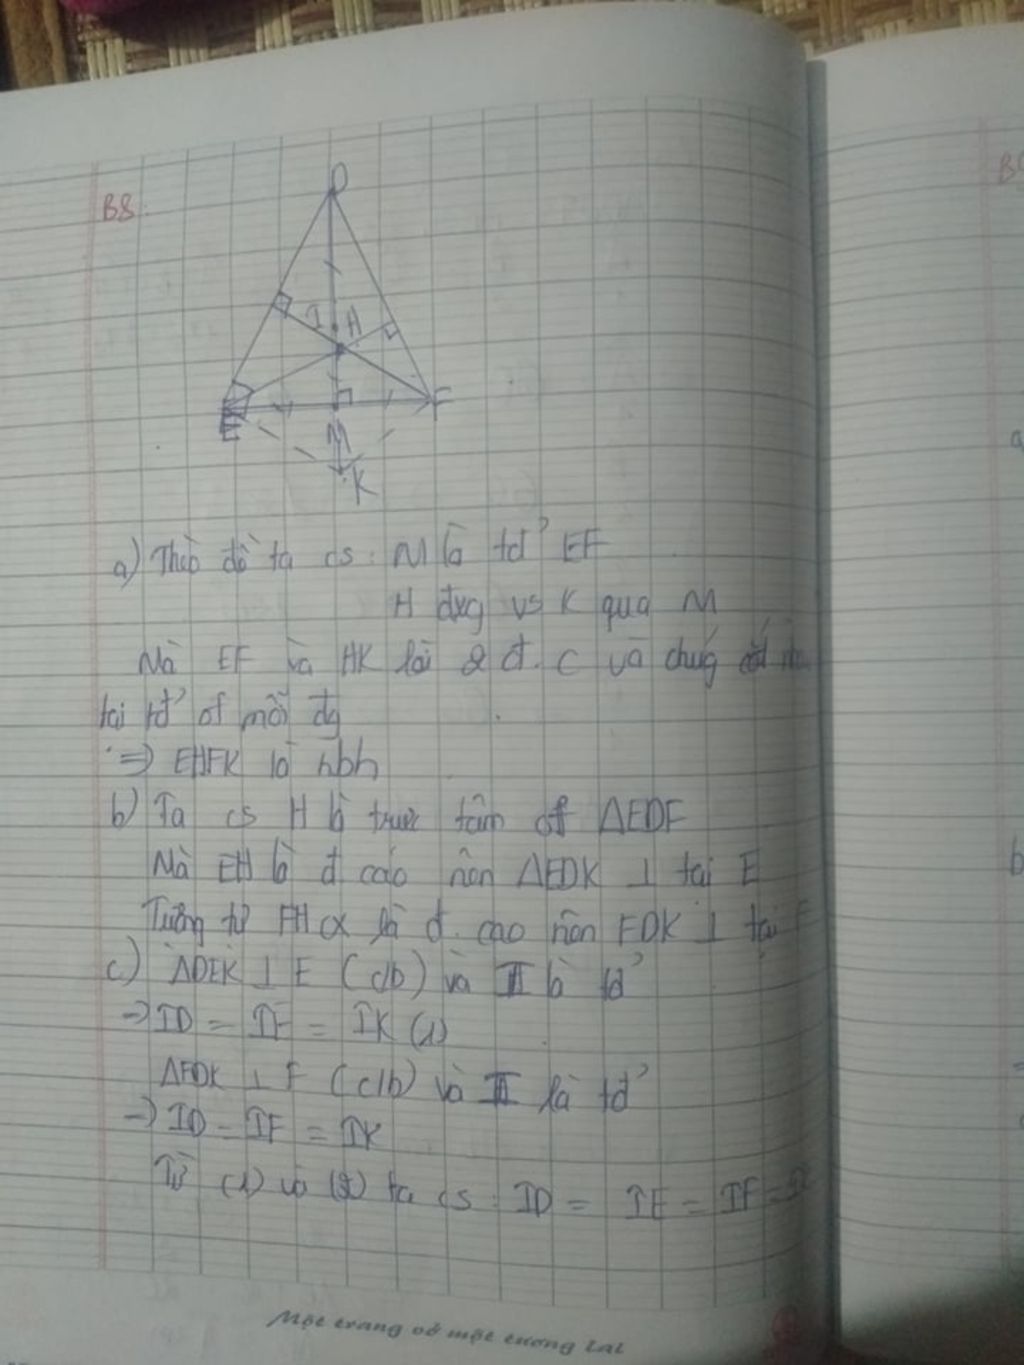 B8.
D
I H
E
F
M
K
a) Theo đề ta cs: M là tđ' EF
H đxg vs K qua M
Mà EF và HK lài 2 đ. C và chúg cắt
tại tđ' of mỗi đg
=> EHFK là hbh
b) Ta cs H là trực tâm of ΔEDF
Mà EH là đ cao nên ΔEDK ⊥ tại E
Tương tự FH là đ. cao nên FDK ⊥ tại F
c) ΔDEK ⊥ E (c/b) và I là tđ'
-> ID = IE = IK (1)
ΔFDK ⊥ F (c/b) và I là tđ'
-> ID = IF = IK
Từ (1) và (2) ta cs: ID = IE = IF =
Một trang vở một tương lai